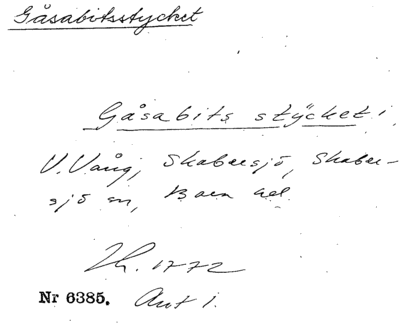 Gåsabitsstycket
Gåsabits stÿcket i
V. Vång, Skabersjö, Skaber-
sjö sn, Bara hd.
Lh. 1772
Nr 6385. Avt 1.